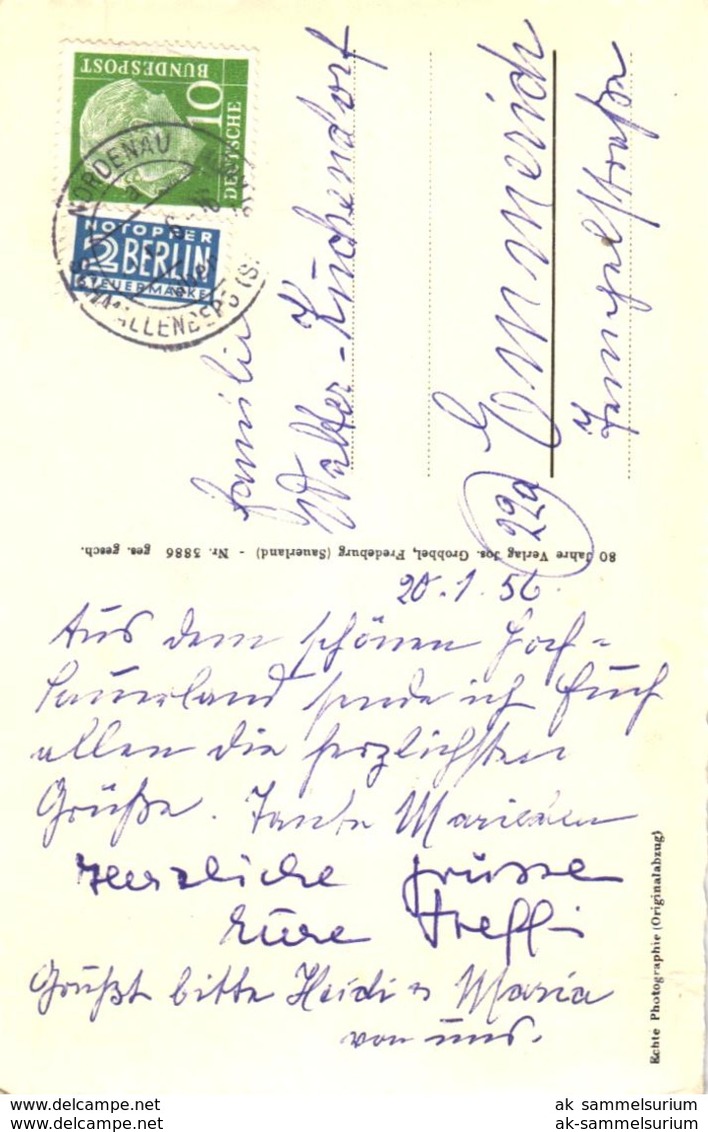 DEUTSCHE
BUNDESPOST
10
NOTOPFER
2 BERLIN
STEUERMARKE
NORDENAU
Familie
Walter-Küchendorf
(22a) Emmerich
80 Jahre Verlag Jos. Grobbel, Fredeburg (Sauerland) - Nr. 3886 ges. gesch.
20.1.56.
Aus dem schönen Hoch-
Sauerland sende ich Euch
allen die herzlichsten
Grüße. Tante
Herzliche Grüsse
Eure Steffi
Grüßt bitte Heidi u Maria
von uns.
Echte Photographie (Originalabzug)
ak sammelsurium
ak-sammelsurium